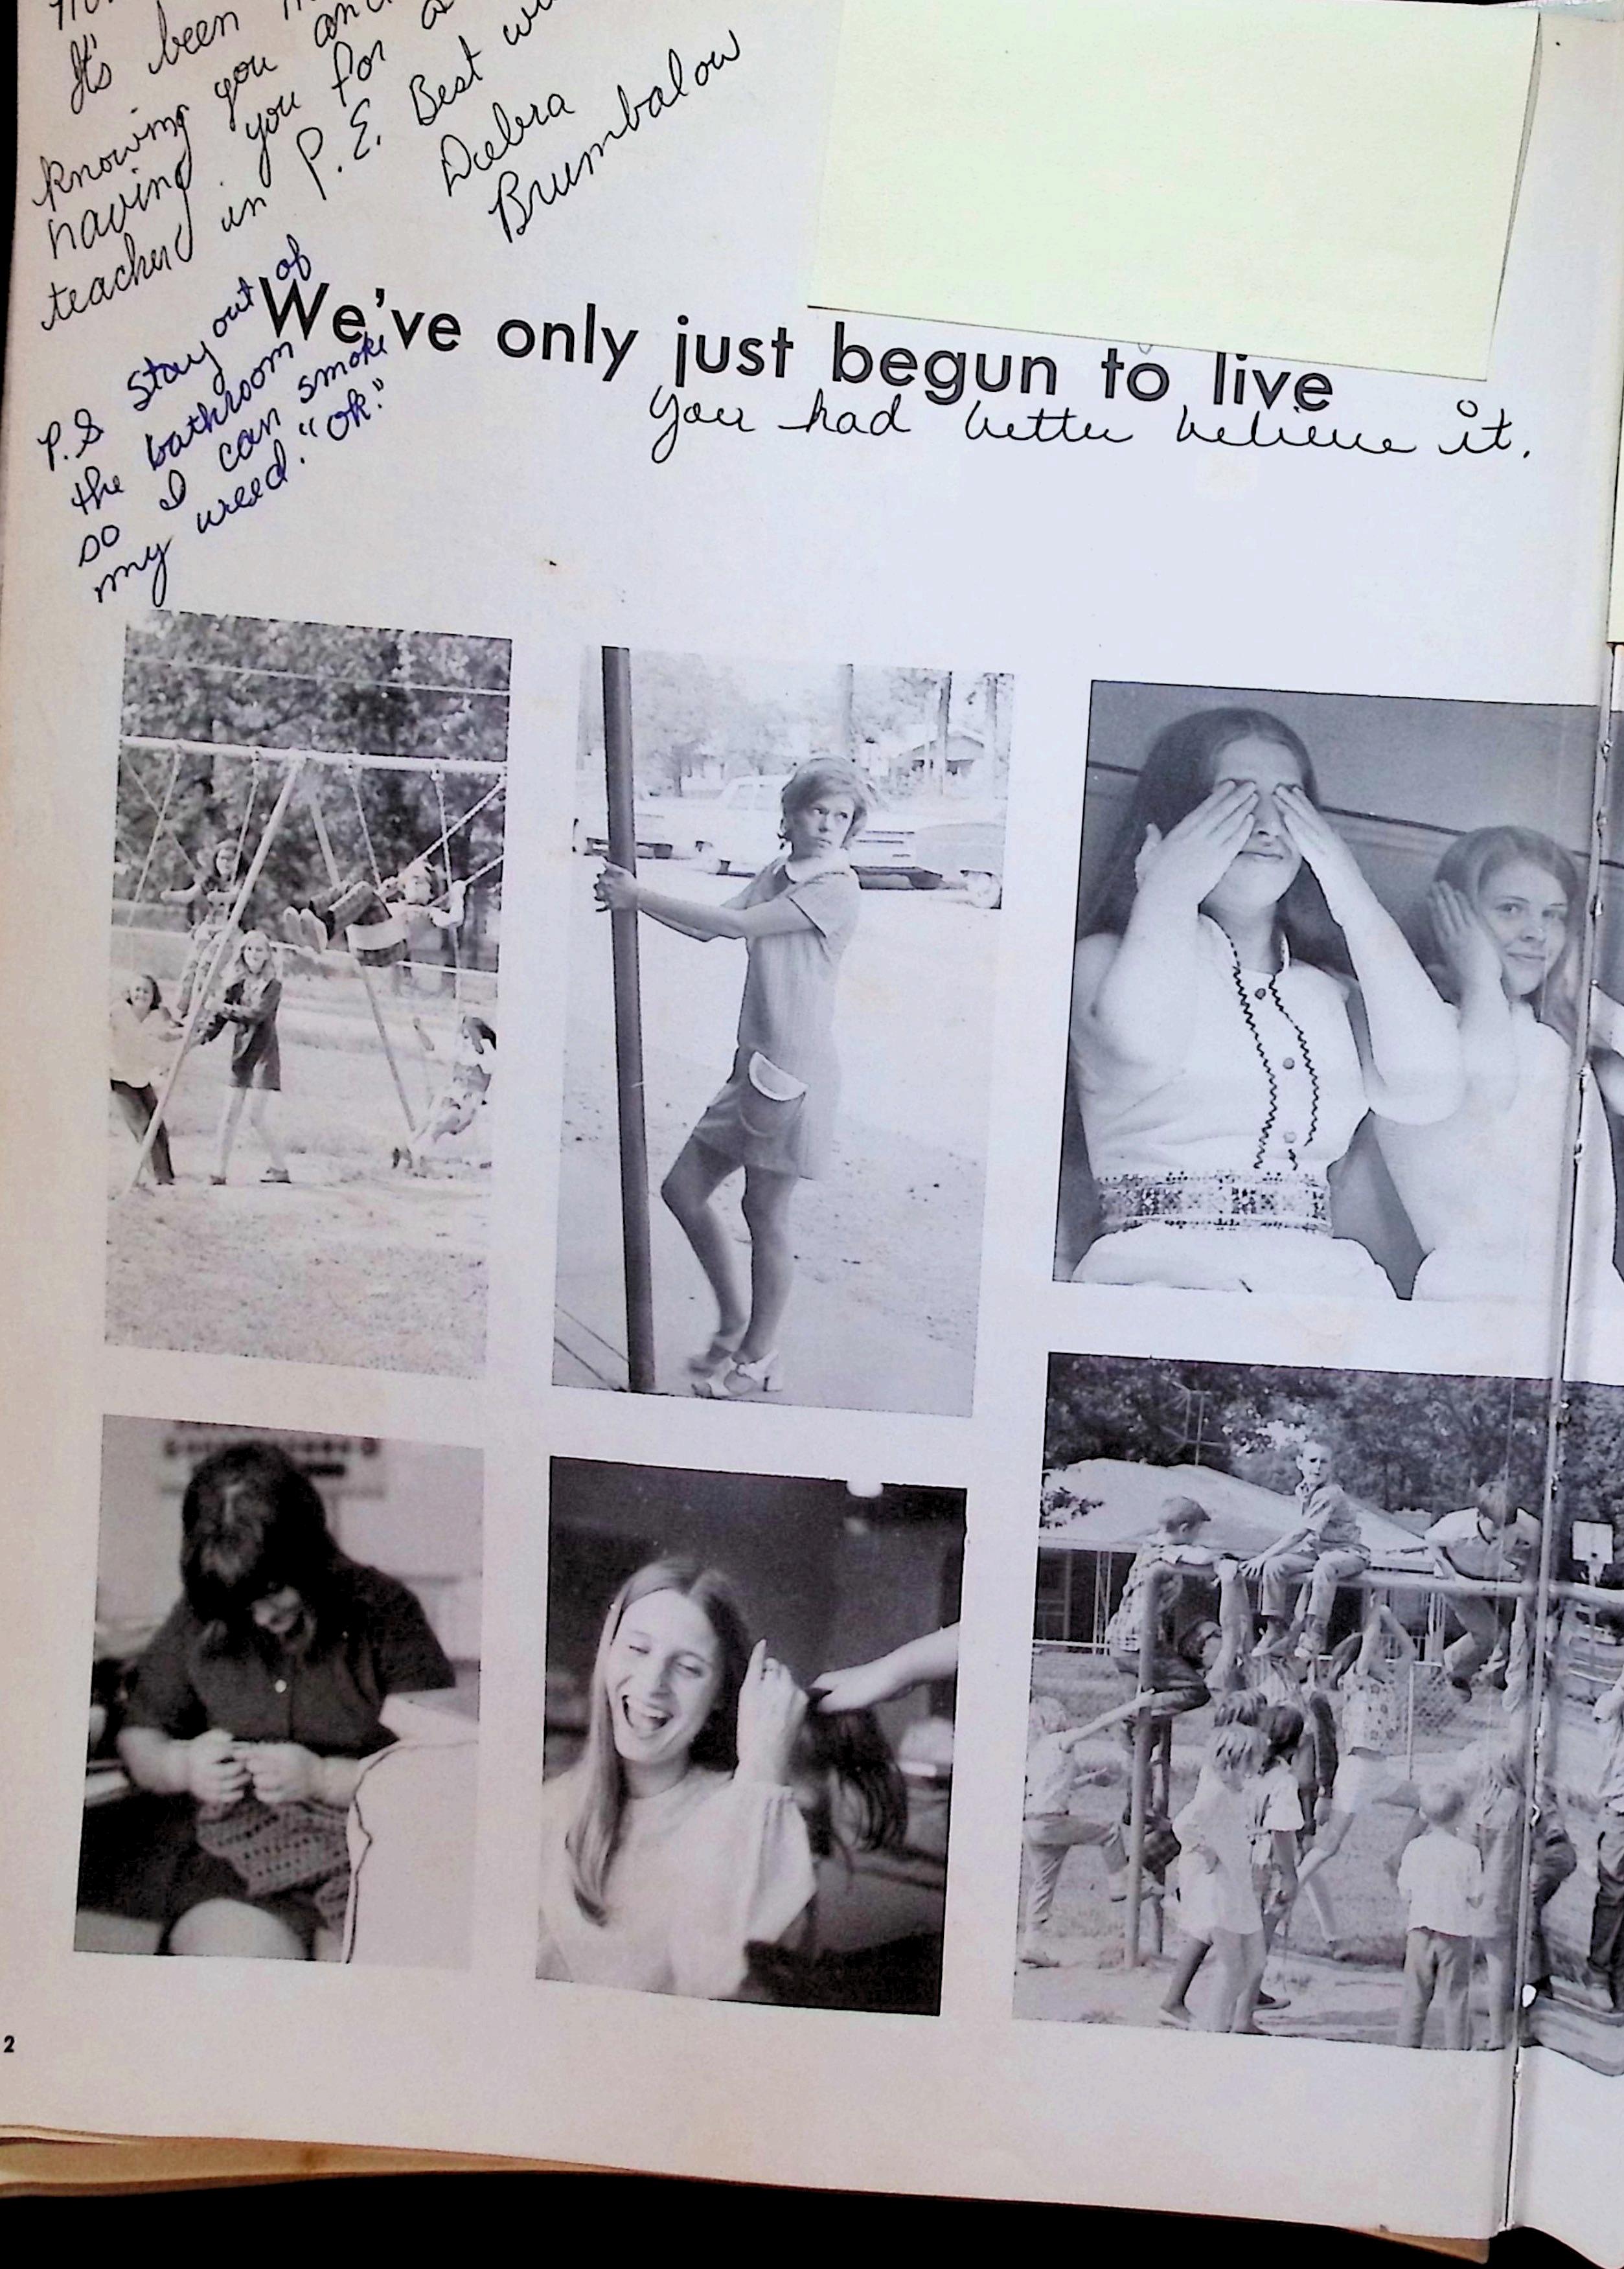 It's been
knowing you and
having you for a
teacher in P.E. Best
Debra
Brumbalow
P.S Stay out of
the bathroom
so I can smoke
my weed. "OK."
We've only just begun to live
You had better believe it.
2